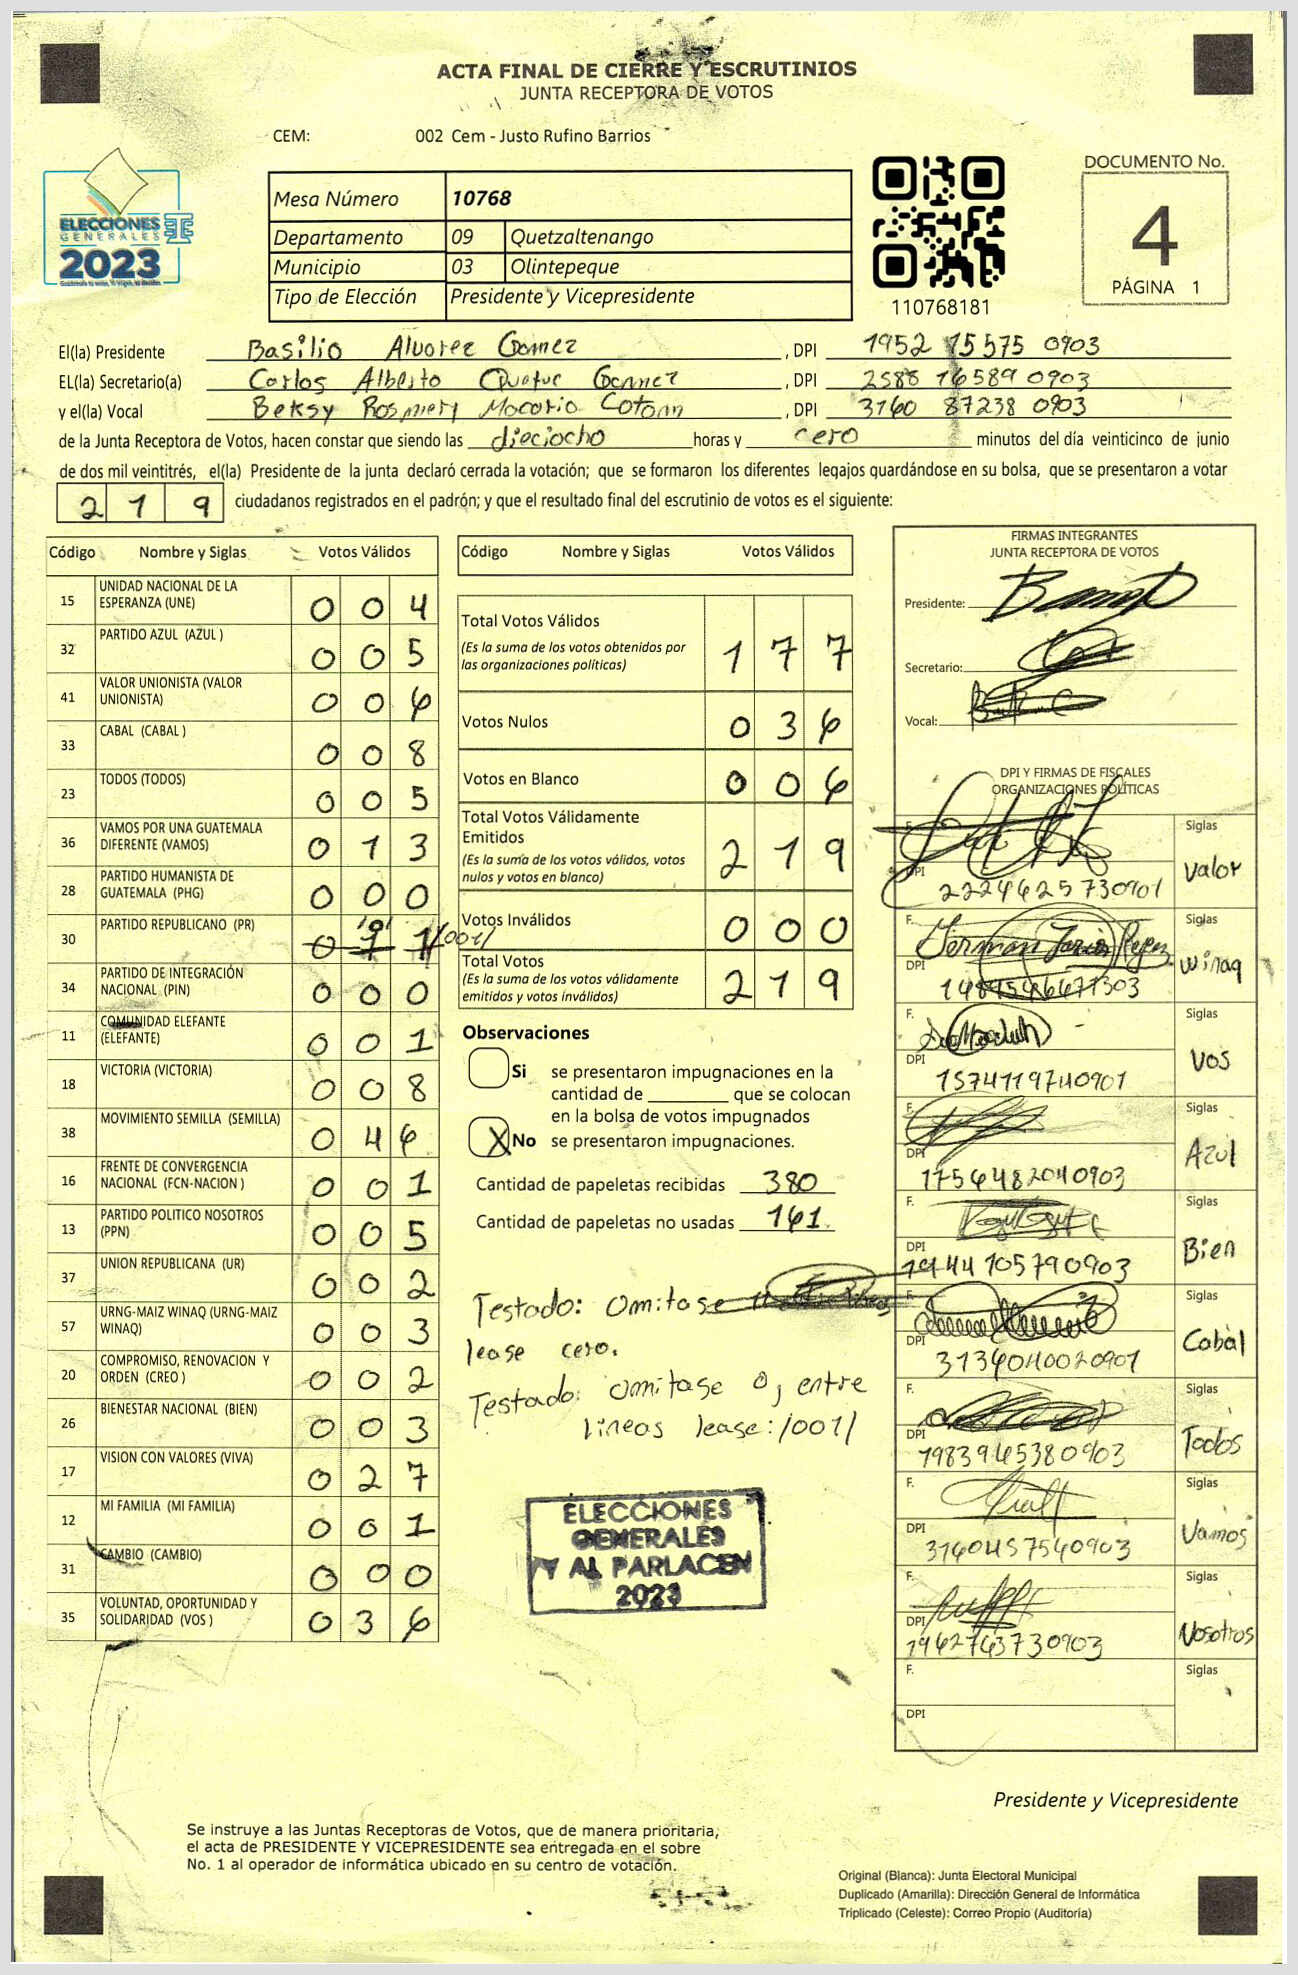 ACTA FINAL DE CIERRE Y ESCRUTINIOS
JUNTA RECEPTORA DE VOTOS
CEM: 002 Cem - Justo Rufino Barrios
ELECCIONES
GENERALES
2023
Mesa Número 10768
Departamento 09 Quetzaltenango
Municipio 03 Olintepeque
Tipo de Elección Presidente y Vicepresidente
110768181
DOCUMENTO No.
4
PÁGINA 1
El(la) Presidente Basilio Alvarez Gomez, DPI 1952 15575 0903
EL(la) Secretario(a) Carlos Alberto Gomez, DPI 2588 16589 0903
y el(la) Vocal Betsy Rosmery Macario, DPI 3160 87238 0903
de la Junta Receptora de Votos, hacen constar que siendo las dieciocho horas y cero minutos del día veinticinco de junio
de dos mil veintitrés, el(la) Presidente de la junta declaró cerrada la votación; que se formaron los diferentes legajos quardándose en su bolsa, que se presentaron a votar
219 ciudadanos registrados en el padrón; y que el resultado final del escrutinio de votos es el siguiente:
Código Nombre y Siglas Votos Válidos
15 UNIDAD NACIONAL DE LA ESPERANZA (UNE) 0 0 4
32 PARTIDO AZUL (AZUL ) 0 0 5
41 VALOR UNIONISTA (VALOR UNIONISTA) 0 0 6
33 CABAL (CABAL ) 0 0 8
23 TODOS (TODOS) 0 0 5
36 VAMOS POR UNA GUATEMALA DIFERENTE (VAMOS) 0 1 3
28 PARTIDO HUMANISTA DE GUATEMALA (PHG) 0 0 0
30 PARTIDO REPUBLICANO (PR) 0 1 1 /001/
34 PARTIDO DE INTEGRACIÓN NACIONAL (PIN) 0 0 0
11 COMUNIDAD ELEFANTE (ELEFANTE) 0 0 1
18 VICTORIA (VICTORIA) 0 0 8
38 MOVIMIENTO SEMILLA (SEMILLA) 0 4 6
16 FRENTE DE CONVERGENCIA NACIONAL (FCN-NACION ) 0 0 1
13 PARTIDO POLITICO NOSOTROS (PPN) 0 0 5
37 UNION REPUBLICANA (UR) 0 0 2
57 URNG-MAIZ WINAQ (URNG-MAIZ WINAQ) 0 0 3
20 COMPROMISO, RENOVACION Y ORDEN (CREO ) 0 0 2
26 BIENESTAR NACIONAL (BIEN) 0 0 3
17 VISION CON VALORES (VIVA) 0 2 7
12 MI FAMILIA (MI FAMILIA) 0 0 1
31 CAMBIO (CAMBIO) 0 0 0
35 VOLUNTAD, OPORTUNIDAD Y SOLIDARIDAD (VOS ) 0 3 6
Código Nombre y Siglas Votos Válidos
Total Votos Válidos 1 7 7
(Es la suma de los votos obtenidos por
las organizaciones políticas)
Votos Nulos 0 3 6
Votos en Blanco 0 0 6
Total Votos Válidamente
Emitidos 2 1 9
(Es la suma de los votos válidos, votos
nulos y votos en blanco)
Votos Inválidos 0 0 0
Total Votos 2 1 9
(Es la suma de los votos válidamente
emitidos y votos inválidos)
Observaciones
Si se presentaron impugnaciones en la
cantidad de ________ que se colocan
en la bolsa de votos impugnados
X No se presentaron impugnaciones.
Cantidad de papeletas recibidas 380
Cantidad de papeletas no usadas 161.
Testado: Omitase
lease cero.
Testado: Omitase 0, entre
lineas lease: /001/
ELECCIONES
GENERALES
Y AL PARLACEN
2023
FIRMAS INTEGRANTES
JUNTA RECEPTORA DE VOTOS
Presidente:
Secretario:
Vocal:
DPI Y FIRMAS DE FISCALES
ORGANIZACIONES POLÍTICAS
F. Siglas
DPI 2224625730901 Valor
F. Siglas
DPI Winaq
F. Siglas
DPI 1574119740901 Vos
F. Siglas
DPI 1756482040903 Azul
F. Siglas
DPI 1944105790903 Bien
F. Siglas
DPI 3134040020901 Cabal
F. Siglas
DPI 1983965380903 Todos
F. Siglas
DPI 3160457540903 Vamos
F. Siglas
DPI 1962763730903 Nosotros
F. Siglas
DPI
Presidente y Vicepresidente
Se instruye a las Juntas Receptoras de Votos, que de manera prioritaria,
el acta de PRESIDENTE Y VICEPRESIDENTE sea entregada en el sobre
No. 1 al operador de informática ubicado en su centro de votación.
Original (Blanca): Junta Electoral Municipal
Duplicado (Amarilla): Dirección General de Informática
Triplicado (Celeste): Correo Propio (Auditoría)